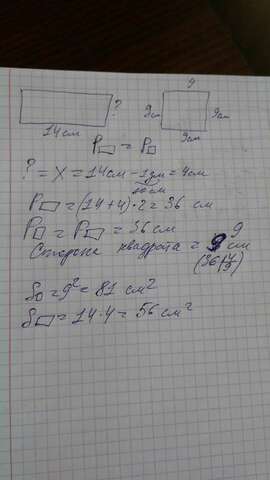 9
?
9см
9см
14см
9см
P▭ = P□
? = X = 14см - 1дм = 4см
10см
P▭ = (14+4)·2 = 36 см
P□ = P▭ = 36 см
9
Сторона квадрата = 9 см
(36:4)
S□ = 9² = 81 см²
S▭ = 14·4 = 56 см²